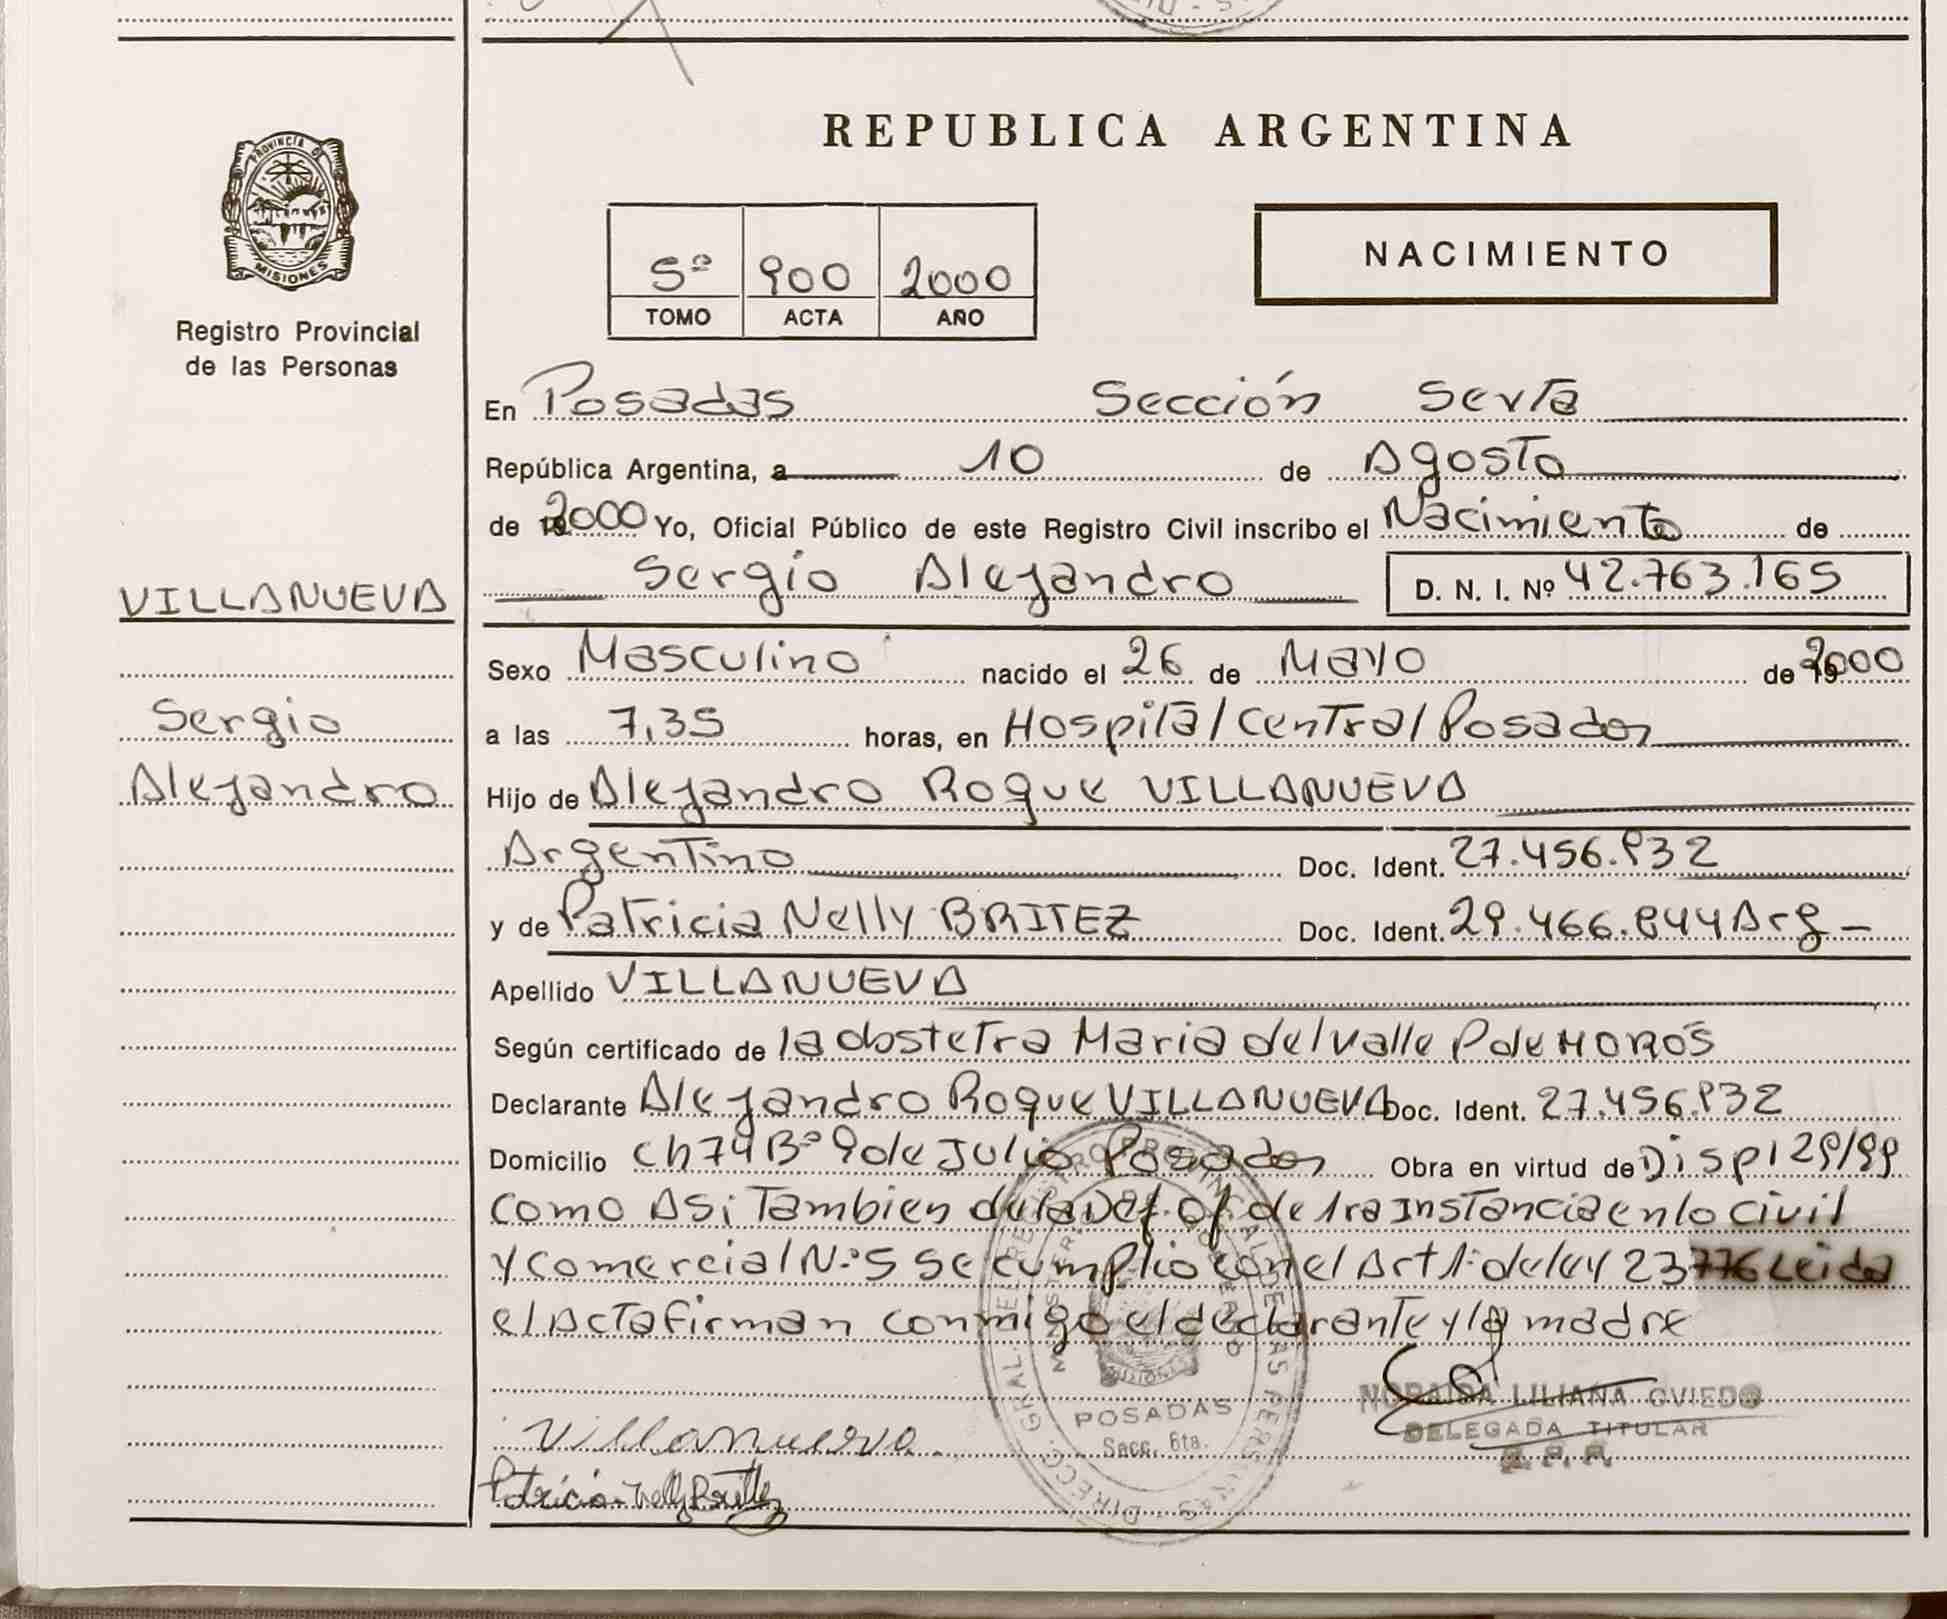 REPUBLICA ARGENTINA
PROVINCIA DE
MISIONES
Registro Provincial
de las Personas
5º 900 2000
TOMO ACTA AÑO
NACIMIENTO
En Posadas Sección Sexta
República Argentina, a 10 de Agosto
de 2000 Yo, Oficial Público de este Registro Civil inscribo el Nacimiento de
VILLANUEVA
Sergio Alejandro D. N. I. Nº 42.763.165
Sexo Masculino nacido el 26 de Mayo de 2000
Sergio
a las 7,35 horas, en Hospital Central Posadas
Alejandro
Hijo de Alejandro Roque VILLANUEVA
Argentino Doc. Ident. 27.456.832
y de Patricia Nelly BRITEZ Doc. Ident. 29.466.844 Arg
Apellido VILLANUEVA
Según certificado de la obstetra Maria del Valle P de
Declarante Alejandro Roque VILLANUEVA Doc. Ident. 27.456.832
Domicilio Ch 74 Bº 9 de Julio Posadas Obra en virtud de Disp 129/99
como Asi Tambien de la Def. Of de 1ra Instancia en lo Civil
y Comercial Nº 5 se cumplio con el Art 1º de ley 23776 Leida
el Acta firman conmigo el declarante y la madre
NORAIDA LILIANA OVIEDO
DELEGADA TITULAR
Villanueva
Patricia Nelly Britez
POSADAS
Secc. 6ta.